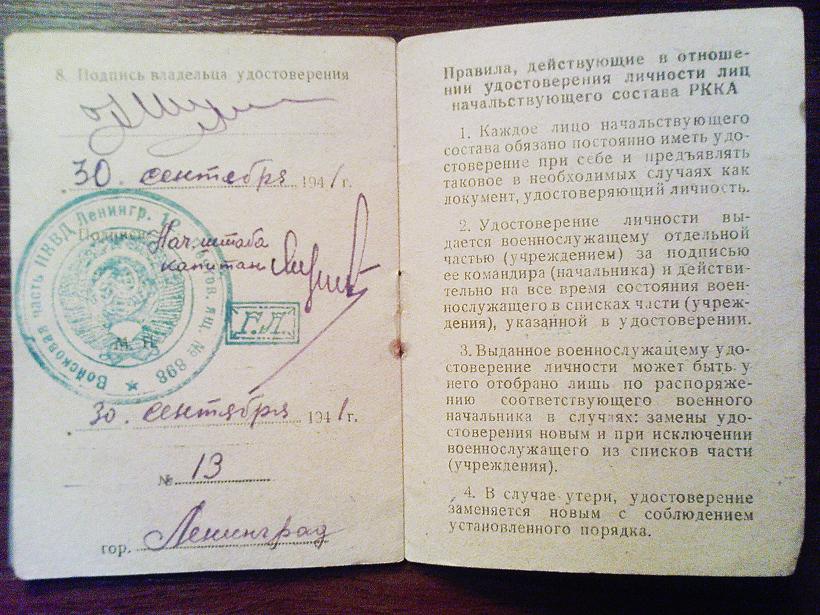 8. Подпись владельца удостоверения
30. сентября 1941 г.
Нач. штаба
капитан
Войсковая часть НКВД Ленингр. почтов. ящ. № 898
М. П.
Г.Л.
30. сентября 1941 г.
№ 13
гор. Ленинград
Правила, действующие в отноше-
нии удостоверения личности лиц
начальствующего состава РККА
1. Каждое лицо начальствующего
состава обязано постоянно иметь удо-
стоверение при себе и предъявлять
таковое в необходимых случаях как
документ, удостоверяющий личность.
2. Удостоверение личности вы-
дается военнослужащему отдельной
частью (учреждением) за подписью
ее командира (начальника) и действи-
тельно на все время состояния воен-
нослужащего в списках части (учреж-
дения), указанной в удостоверении.
3. Выданное военнослужащему удо-
стоверение личности может быть у
него отобрано лишь по распоряже-
нию соответствующего военного
начальника в случаях: замены удо-
стоверения новым и при исключении
военнослужащего из списков части
(учреждения).
4. В случае утери, удостоверение
заменяется новым с соблюдением
установленного порядка.